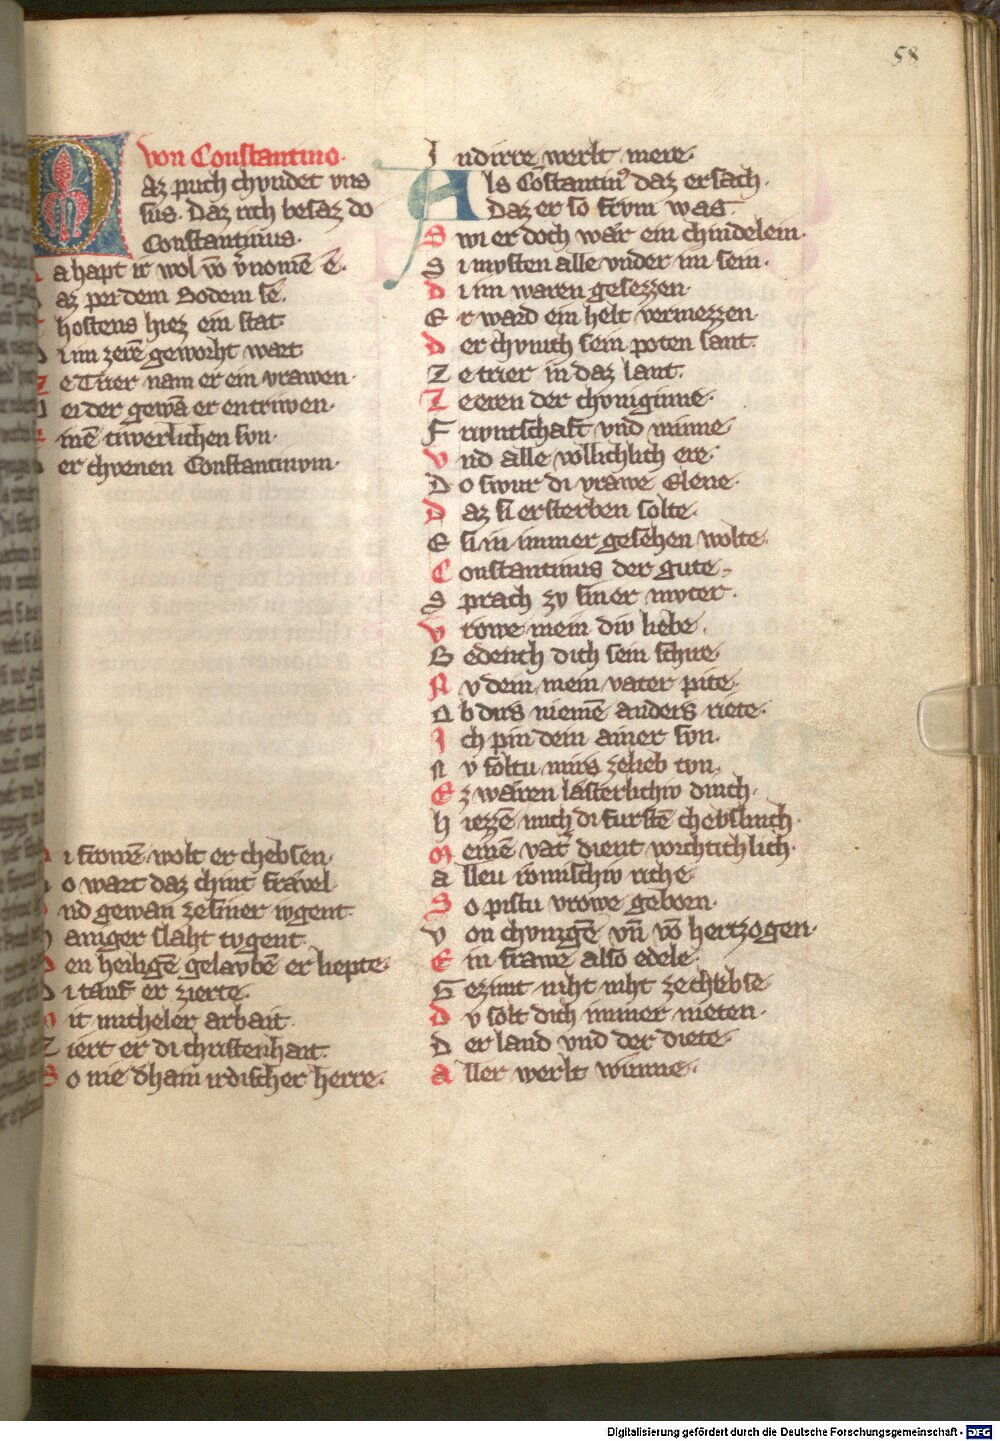 58
von Constantino.
Daz puch chvndet vns
sus. Daz rich besaz do
Constantinus.
a hapt ir wol vō v̄nomē ē.
az pei dem Bodem se.
hostens hiez ein stat
i im zerē geworht wart
ze Trier nam er ein vrawen.
ei der gewā er entriwen.
inē tiwerlichen svn.
er chvenen Constantinvm.
i frowē wolt er chebsen.
o wart daz chint fravel
nd gewan ze siner ivgent.
aniger slaht tvgent.
en heiligē gelavbē er liepte.
i tauf er zierte.
it micheler arbait.
Ziert er di christenhait.
So nie dhain irdischer herre.
In dirre werlt mere.
Als Cōstantin⁹ daz ersach.
Daz er so frvm was.
Swi er doch wâr ein chindelein.
Si mvsten alle vnder im sein.
di im waren gesezzen.
Er ward ein helt vermezzen
der chvnich sein poten sant.
Ze trier in daz lant.
Ze eren der chvniginne.
Frivntschaft vnd minne
Vnd alle vollichlich ere.
Do swur di vrawe Elene.
daz si ersterben solte.
E si in immer gesehen wolte.
Constantinus der gute.
Sprach zv siner mvter.
vrowe mein div liebe.
Bedench dich sein schire
Nv dein mein vater pite.
Ob dirs niemē anders riete.
Ich pin dein ainer svn.
Nv soltu mirs zelieb tvn.
Ez wâren lâsterlichiv dinch.
hiezzē mich di furstē chebslinch.
Meinē vat̓ dient vorchtichlich.
alleu römischiv riche.
So pistu vrowe geborn.
von chvnigē vn̄ vō hertzogen.
Ein frawe also edele.
Gezimt niht niht ze chebse
dv solt dich immer nieten.
Der land vnd der diete.
aller werlt wunne.
Digitalisierung gefördert durch die Deutsche Forschungsgemeinschaft - DFG